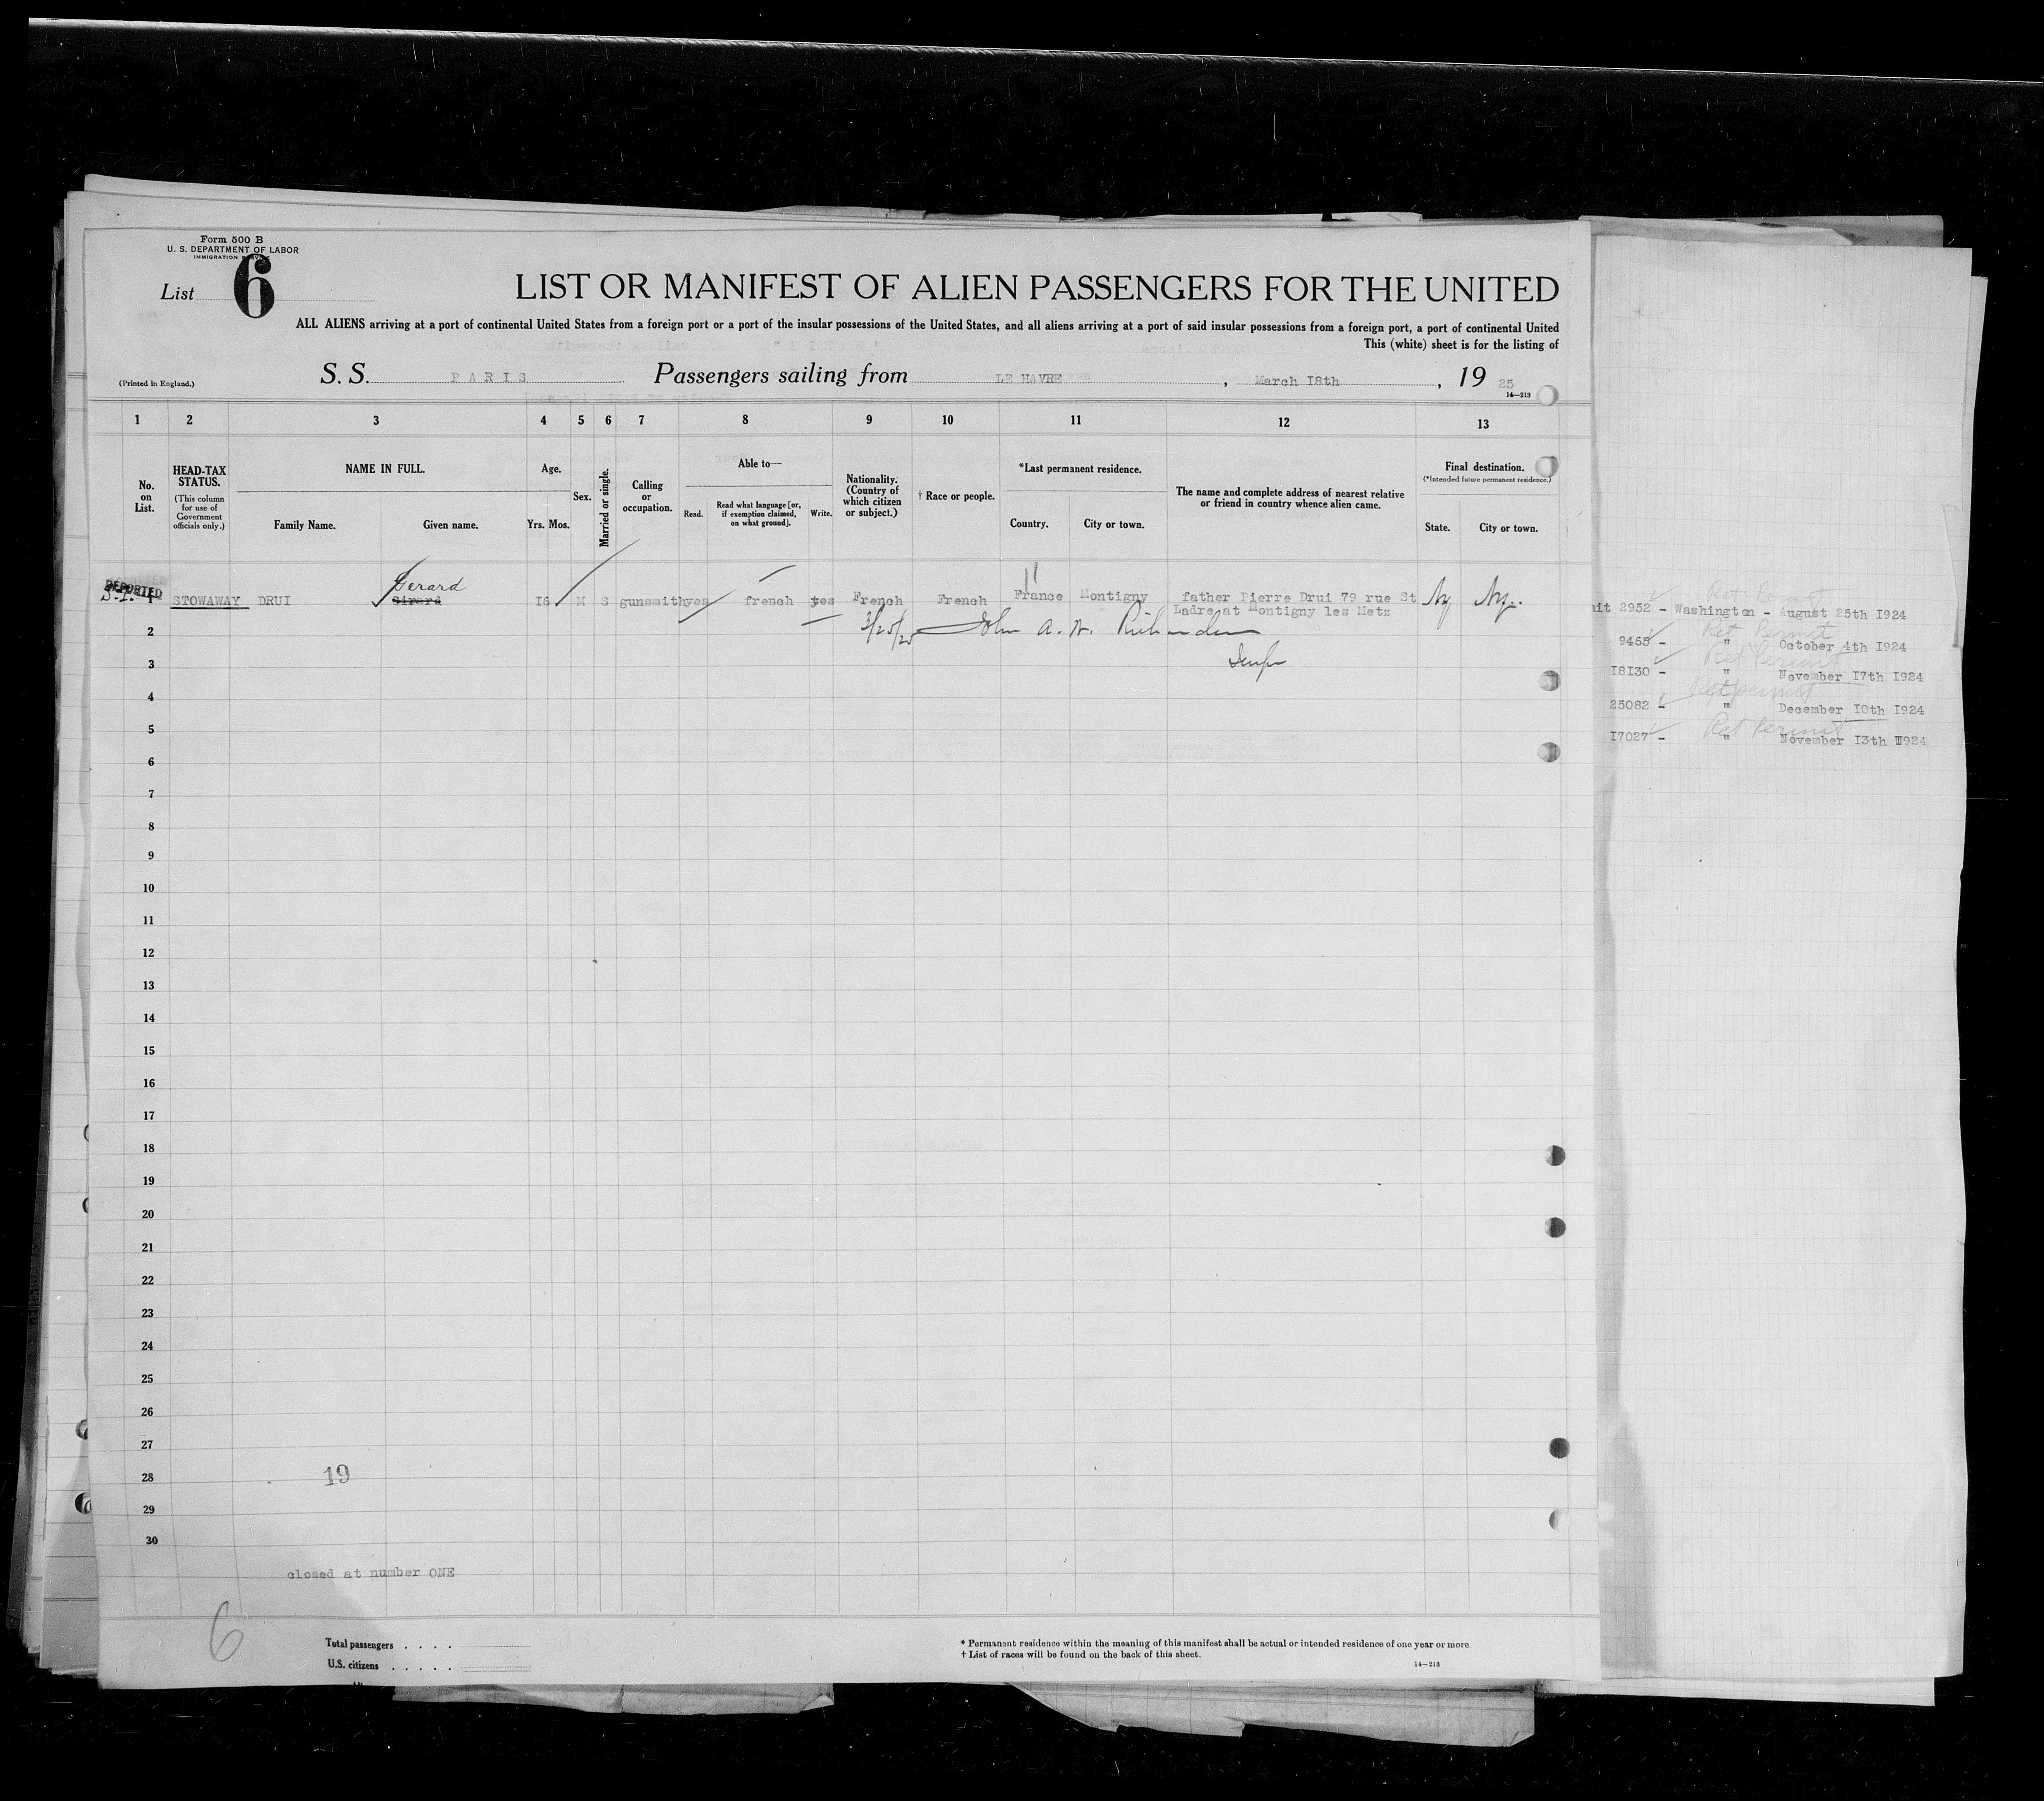 Form 500 B
U. S. DEPARTMENT OF LABOR
IMMIGRATION
List 6
LIST OR MANIFEST OF ALIEN PASSENGERS FOR THE UNITED
ALL ALIENS arriving at a port of continental United States from a foreign port or a port of the insular possessions of the United States, and all aliens arriving at a port of said insular possessions from a foreign port, a port of continental United
This (white) sheet is for the listing of
(Printed in England.)
S. S. PARIS Passengers sailing from LE HAVRE, March 18th, 19 25
14—213
1 2 3 4 5 6 7 8 9 10 11 12 13
No. on List.
HEAD-TAX STATUS.
(This column for use of Government officials only.)
NAME IN FULL.
Family Name. Given name.
Age.
Yrs. Mos.
Sex.
Married or single.
Calling or occupation.
Able to—
Read. Read what language [or, if exemption claimed, on what ground]. Write.
Nationality. (Country of which citizen or subject.)
† Race or people.
*Last permanent residence.
Country. City or town.
The name and complete address of nearest relative or friend in country whence alien came.
Final destination.
(*Intended future permanent residence.)
State. City or town.
Gerard
DEPORTED
S.I. 1 STOWAWAY DRUI Girard I6 M S gunsmith yes french yes French French France Montigny father Pierre Drui 79 rue St Ny Ny.
Ladre at Montigny les Metz
2
3/25/25 John A. W. Richardson
3
4
5
6
7
8
9
10
11
12
13
14
15
16
17
18
19
20
21
22
23
24
25
26
27
28
19
29
30
closed at number ONE
6
Total passengers . . . .
U.S. citizens . . . . .
* Permanent residence within the meaning of this manifest shall be actual or intended residence of one year or more.
† List of races will be found on the back of this sheet.
14—213
Ret Permit
it 2952 - Washington - August 25th I924
Ret Permit
9465 - " October 4th I924
Ret Permit
I8I30 - " November I7th I924
Ret permit
25082 - " December I0th I924
Ret Permit
I7027 - " November I3th I924